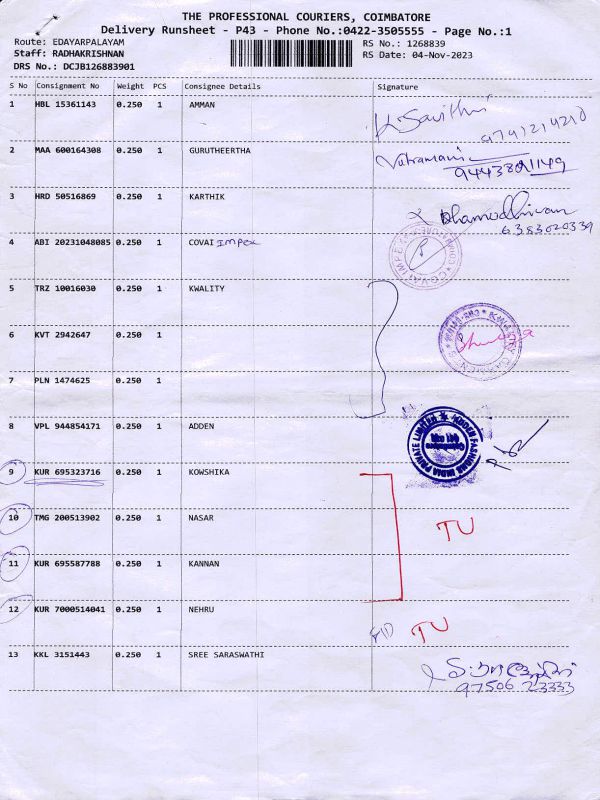 THE PROFESSIONAL COURIERS, COIMBATORE
Delivery Runsheet - P43 - Phone No.:0422-3505555 - Page No.:1
Route: EDAYARPALAYAM RS No.: 1268839
Staff: RADHAKRISHNAN RS Date: 04-Nov-2023
DRS No.: DCJB126883901
S No Consignment No Weight PCS Consignee Details Signature
1 HBL 15361143 0.250 1 AMMAN K. Savithri
9791214210
2 MAA 600164308 0.250 1 GURUTHEERTHA
9443801149
3 HRD 50516869 0.250 1 KARTHIK Dhamodhiran
6383020339
4 ABI 20231048085 0.250 1 COVAI Impex
5 TRZ 10016030 0.250 1 KWALITY
6 KVT 2942647 0.250 1
7 PLN 1474625 0.250 1
8 VPL 944854171 0.250 1 ADDEN
9 KUR 695323716 0.250 1 KOWSHIKA
10 TMG 200513902 0.250 1 NASAR TU
11 KUR 695587788 0.250 1 KANNAN
12 KUR 7000514041 0.250 1 NEHRU TU
13 KKL 3151443 0.250 1 SREE SARASWATHI
97506 23333